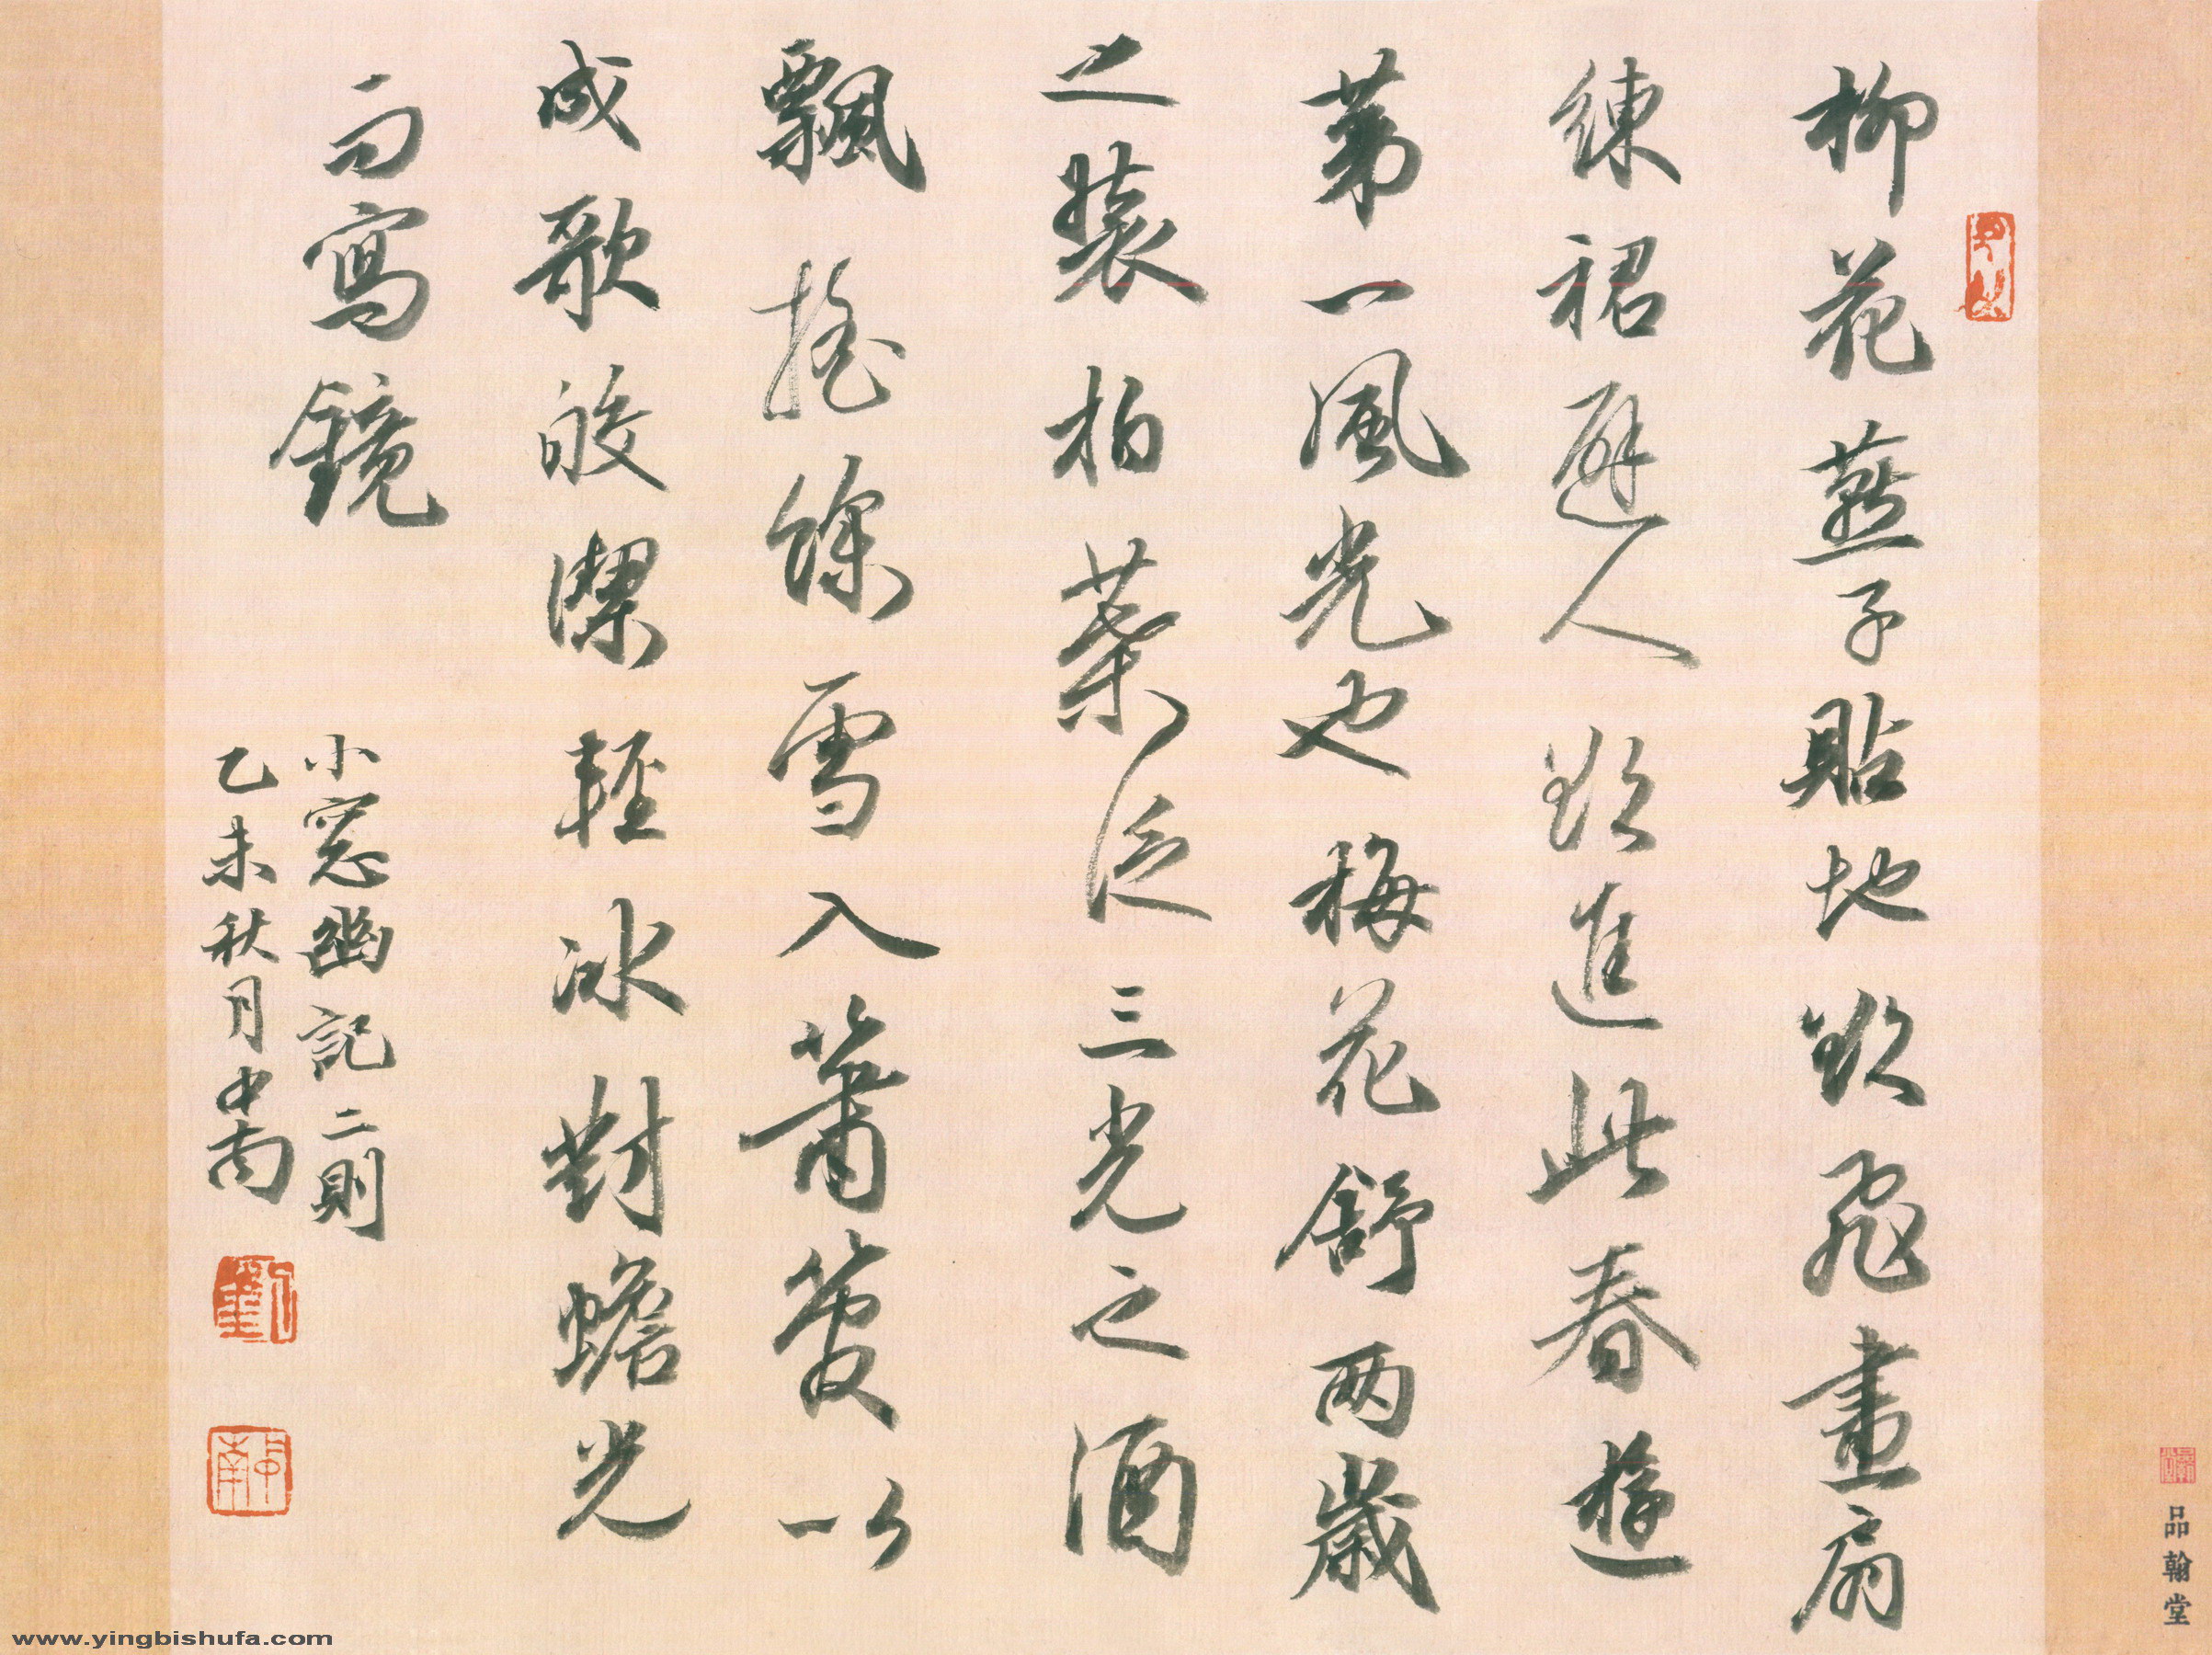 柳花燕子貼地欲飛畫扇
練裙避人欲進此春遊
第一風光也梅花舒两歲
之裝柏葉泛三光之酒
飄搖餘雪入簫管以
成歌皎潔輕冰對蟾光
而寫鏡
小窓幽記二則
乙未秋月
劉
品翰堂
www.yingbishufa.com